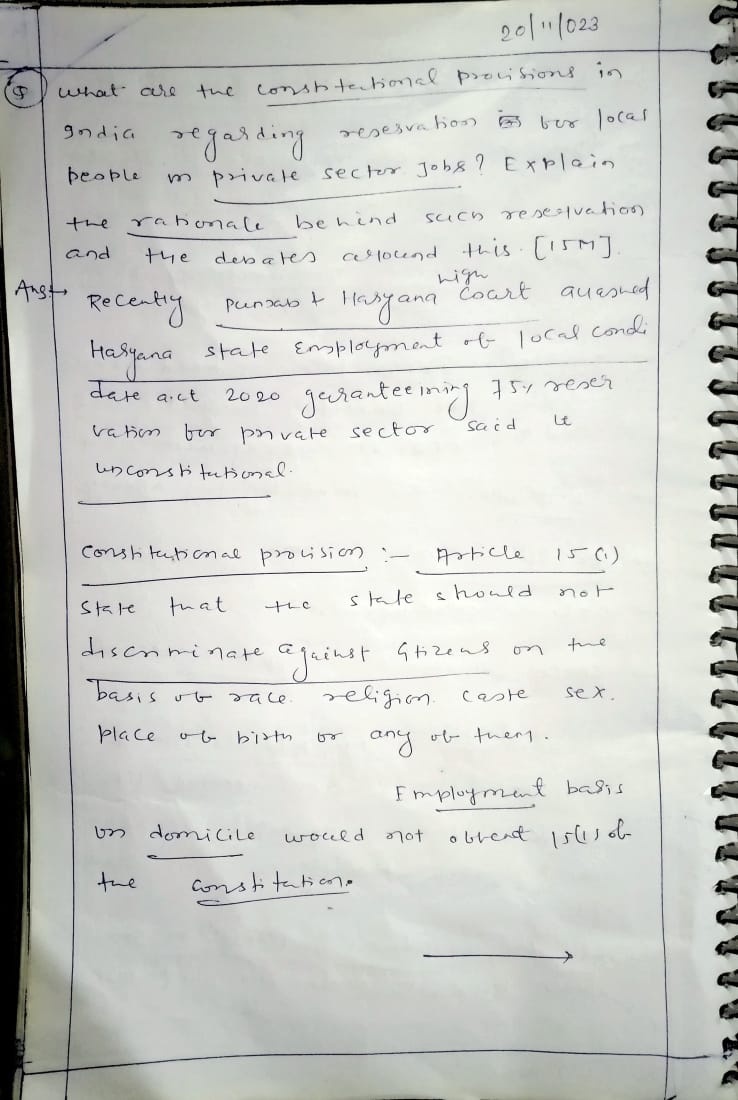 20/11/023
Q what are the constitutional provisions in
India regarding reservation for local
people in private sector jobs? Explain
the rationale behind such reservation
and the debates around this. [15M].
Ans→ Recently Punjab & Haryana high Court quashed
Haryana state Employment of local candi
date act 2020 guranteeining 75% reser
vation for private sector said it
unconstitutional.
Constitutional provision :- Article 15(1)
State that the state should not
discriminate against Citizens on the
basis of race. religion. caste sex.
place of birth or any of them.
Employment basis
on domicile would not 15(1) of
the constitution.